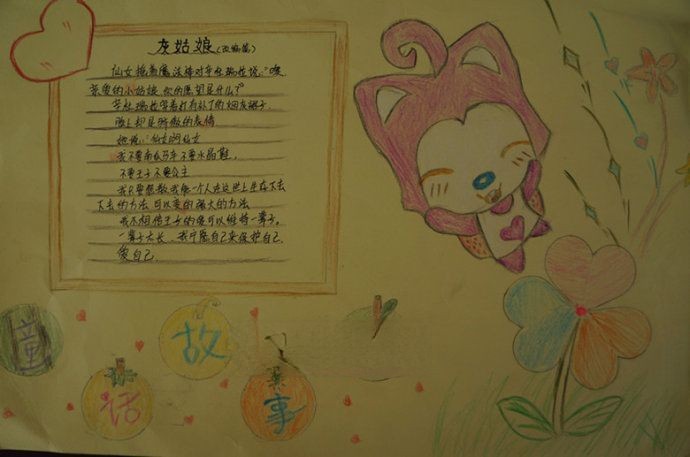 灰姑娘(改编篇)
仙女拖着魔法棒对辛德瑞拉说:"嘿,
亲爱的小姑娘,你的愿望是什么?"
辛德瑞拉穿着打有补丁的烟灰裙子,
脸上却是骄傲的表情
她说:仙女啊仙女
我不要南瓜马车不要水晶鞋,
不要王子不要公主
我只要您教我像一个人在这世上生存下去
下去的方法,可以变的强大的方法
我不相信王子的爱可以维持一辈子。
一辈子太长,我宁愿自己来保护自己
爱自己
童
话
故
事